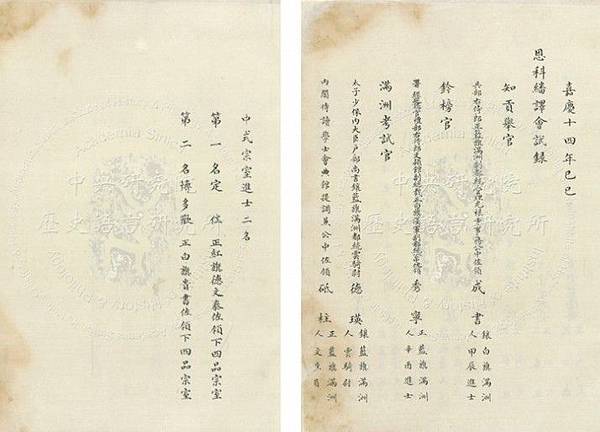 嘉慶十四年己巳
恩科繙譯會試錄
知貢舉官
兵部右侍郎正藍旗滿洲副都統管理光祿寺事務公中佐領成 書 鑲白旗滿洲人甲辰進士
鈐榜官
秀 寧 正藍旗滿洲人辛酉進士
滿洲考試官
太子少保內大臣戶部尚書鑲藍旗滿洲都統雲騎尉德 瑛 鑲藍旗滿洲人雲騎尉
內閣侍讀學士會典館提調兼公中佐領砥 柱 正藍旗滿洲人文生員
中式宗室進士二名
第一名定 住 正紅旗德文泰佐領下四品宗室
第二名博多歡 正白旗貴書佐領下四品宗室
中央研究院
歷史語言研究所